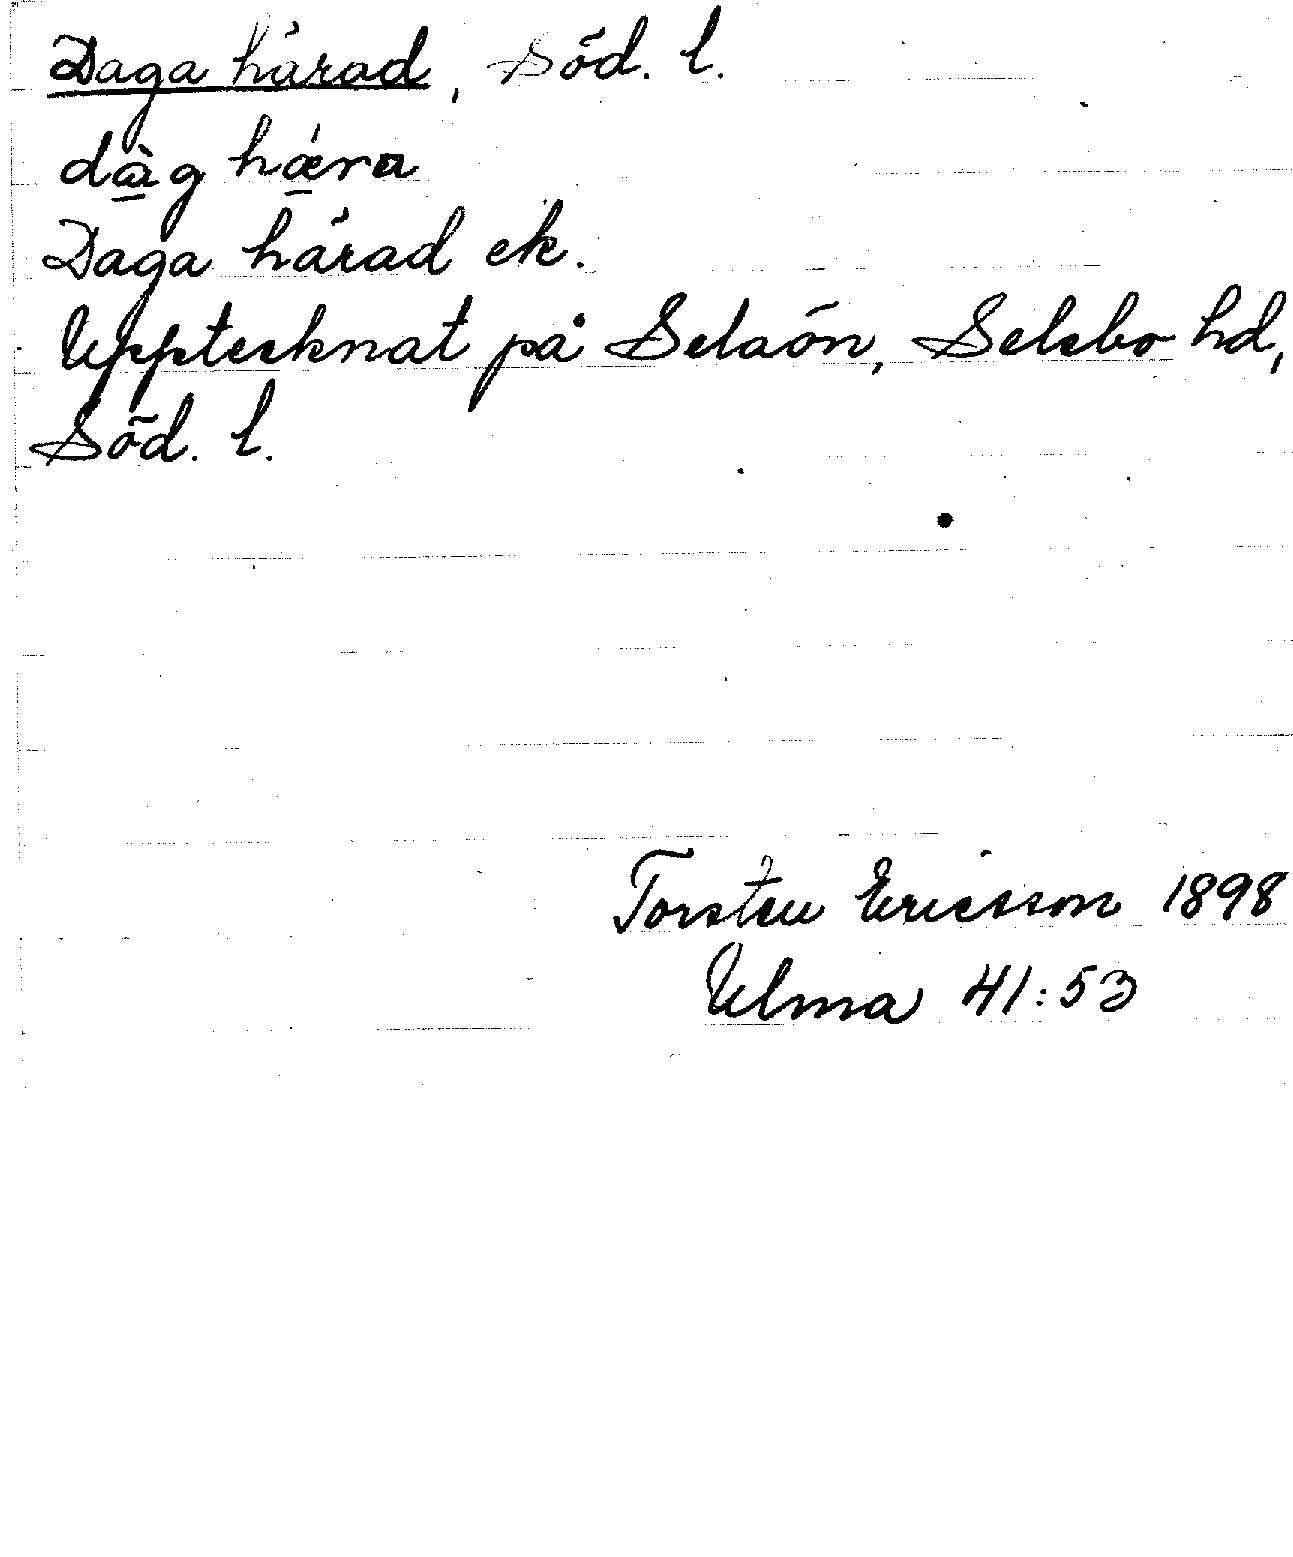 Daga härad, Söd. l.
dàg hǽra
Daga härad ek.
Upptecknat på Selaön, Selebo hd,
Söd. l.
Torsten Ericsson 1898
Ulma 41:53